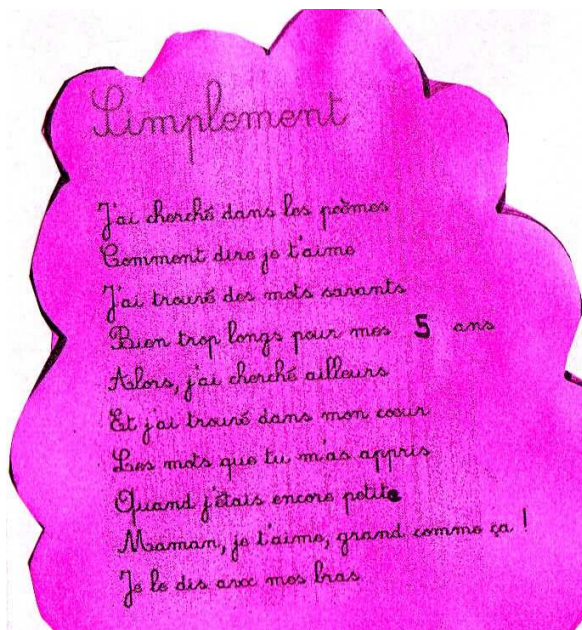 Simplement
J'ai cherché dans les poèmes
Comment dire je t'aime
J'ai trouvé des mots savants
Bien trop longs pour mes 5 ans
Alors, j'ai cherché ailleurs
Et j'ai trouvé dans mon cœur
Les mots que tu m'as appris
Quand j'étais encore petite
Maman, je t'aime, grand comme ça !
Je le dis avec mes bras